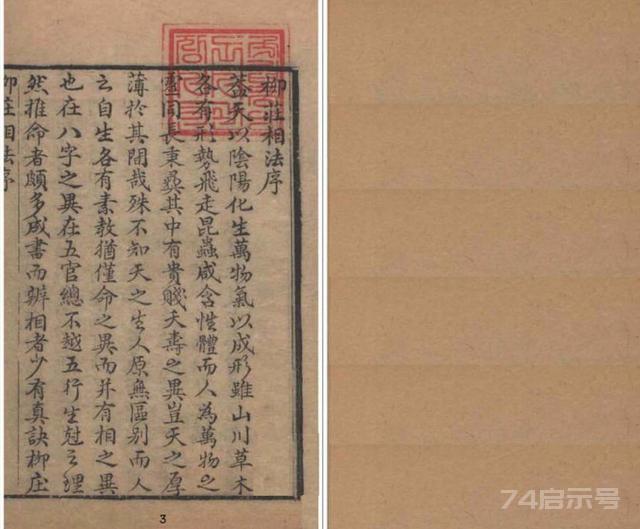 柳莊相法序
葢天以陰陽化生萬物氣以成形雖山川草木
各有形勢飛走昆蟲咸含性體而人為萬物之
靈同長秉彞其中有貴賤夭壽之異豈天之厚
薄於其間哉殊不知天之生人原無區别而人
之自生各有素教猶僅命之異而并有相之異
也在八字之異在五官總不越五行生尅之理
然推命者頗多成書而辨相者少有真訣柳庄
柳莊相法序
3
74启示号